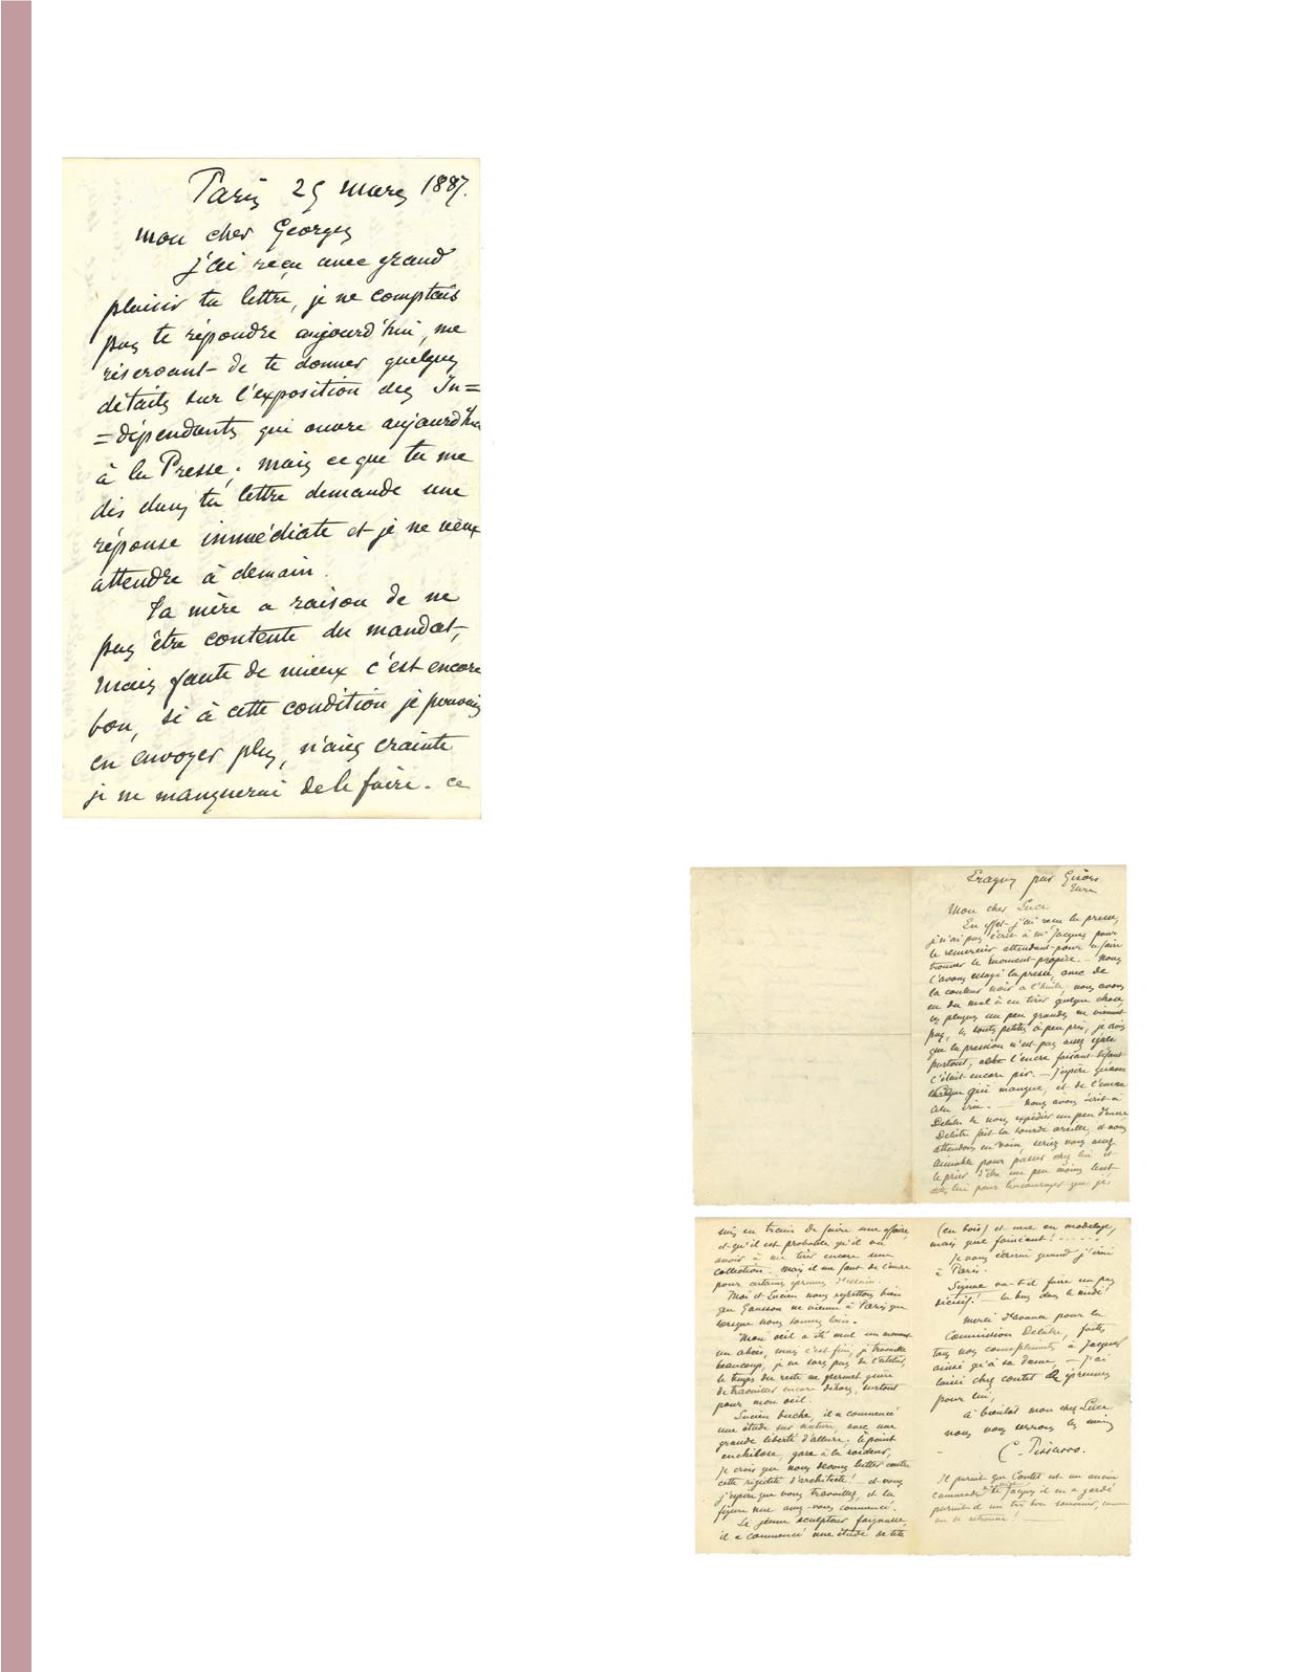 Paris 25 mars 1887.
mon cher Georges
J'ai reçu avec grand
plaisir ta lettre, je ne comptais
pas te répondre aujourd'hui, me
réservant de te donner quelques
détails sur l'exposition des In=
=dépendants qui ouvre aujourd'hui
à la Presse. mais ce que tu me
dis dans ta lettre demande une
réponse immédiate et je ne veux
attendre à demain.
Ta mère a raison de ne
pas être contente du mandat,
mais faute de mieux c'est encore
bon, si à cette condition je pouvais
en envoyer plus, n'aies crainte
je ne manquerai de le faire. ce
Eragny par Gisors
Eure
Mon cher Luce
En effet j'ai reçu la presse,
je n'ai pas écrit à Mr Jacques pour
le remercier attendant pour le faire
trouver le moment propice. - Nous
l'avons essayé la presse, avec de
la couleur noir à l'huile, nous avons
eu du mal à en tirer quelque chose,
les plaques un peu grandes ne viennent
pas, les toutes petites à peu près, je crois
que la pression n'est pas assez égale
partout, l'encre faisant défaut
c'était encore pis. - J'espère
qui manque, et de l'encre
cela ira. - Nous avons écrit à
Delâtre de nous expédier un peu d'encre
Delâtre fait la sourde oreille, et nous
attendons en vain, seriez vous assez
aimable pour passer chez lui et
le prier d'être un peu moins lent
lui pour l'encourager que je
suis en train de faire une affaire,
et qu'il est probable qu'il va
avoir à me tirer encore une
collection. mais il me faut de l'encre
pour certaines épreuves d'essais.
Moi et Lucien nous regrettons bien
que Gausson ne vienne à Paris que
lorsque nous sommes loin.
Mon œil a été mal un moment
un abcès, mais c'est fini, je travaille
beaucoup, je ne sors pas de l'atelier,
le temps du reste ne permet guère
de travailler encore dehors, surtout
pour mon œil.
Lucien bûche, il a commencé
une étude sur nature, avec une
grande liberté d'allure, le point
gare à la raideur,
je crois que nous devons lutter contre
cette rigidité d'architecte! - et vous
j'espère que vous travaillez, et la
figure nue avez-vous commencé.
Le jeune sculpteur
il a commencé une étude de tête
(en bois) et une en modelage,
mais quel fainéant! . . . . .
Je vous écrirai quand j'irai
à Paris.
Signac va-t-il faire un pas
décisif! - là bas dans le midi!
Merci d'avance pour la
commission Delâtre, faites
tous nos compliments à Jacques
ainsi qu'à sa dame, - j'ai
laissé chez Contet épreuves
pour lui,
à bientôt mon cher Luce
nous vous serrons les mains
C. Pissarro.
Il paraît que Contet est un ancien
camarade de Jacques il en a gardé
paraît-il un très bon souvenir, comme
on se retrouve!